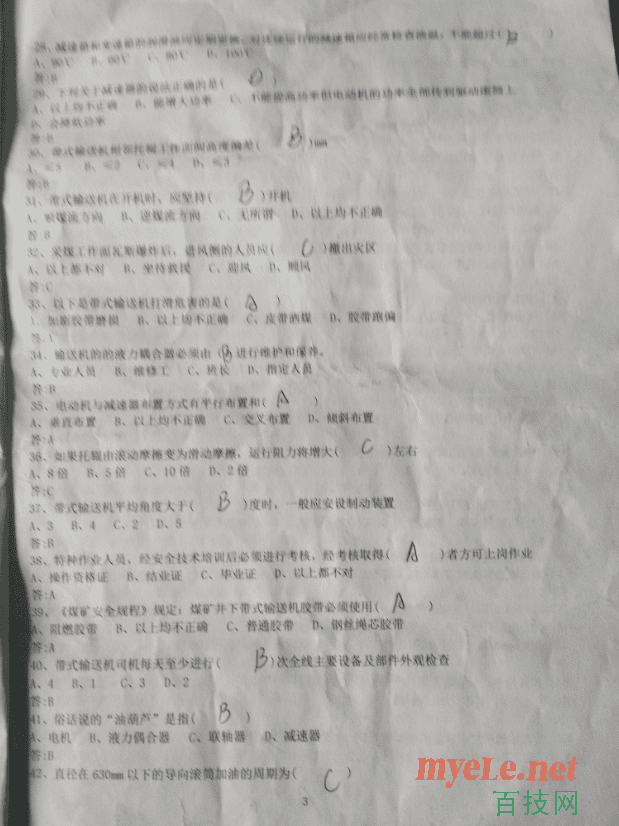 28、减速箱和变速箱的润滑油应定期更换，对连续运行的减速箱应经常检查油温，不能超过( B )
A、90℃ B、60℃ C、80℃ D、100℃
答:B
29、下列关于减速器的说法正确的是( D )
A、以上均不正确 B、能增大功率 C、不能提高功率但电动机的功率全部传到驱动滚筒上
D、会降低功率
30、带式输送机相邻托辊工作面间高度偏差( B )mm
A、≤5 B、≤2 C、≤4 D、≤3
答:B
31、带式输送机在开机时，应坚持( B )开机
A、顺煤流方向 B、逆煤流方向 C、无所谓 D、以上均不正确
答 B
32、采煤工作面瓦斯爆炸后，进风侧的人员应( C )撤出灾区
A、以上都不对 B、坐待救援 C、迎风 D、顺风
答:C
33、以下是带式输送机打滑危害的是( A )
加剧胶带磨损 B、以上均不正确 C、皮带洒煤 D、胶带跑偏
34、输送机的的液力耦合器必须由(B)进行维护和保养。
A、专业人员 B、维修工 C、班长 D、指定人员
答:B
35、电动机与减速器布置方式有平行布置和( A )
A、垂直布置 B、以上均不正确 C、交叉布置 D、倾斜布置
答:A
36、如果托辊由滚动摩擦变为滑动摩擦，运行阻力将增大( C )左右
A、8倍 B、5倍 C、10倍 D、2倍
答:C
37、带式输送机平均角度大于( B )度时，一般应安设制动装置
A、3 B、4 C、2 D、5
答:B
38、特种作业人员，经安全技术培训后必须进行考核，经考核取得( A )者方可上岗作业
A、操作资格证 B、结业证 C、毕业证 D、以上都不对
答:A
39、《煤矿安全规程》规定：煤矿井下带式输送机胶带必须使用( A )
A、阻燃胶带 B、以上均不正确 C、普通胶带 D、钢丝绳芯胶带
答:A
40、带式输送机司机每天至少进行( B )次全线主要设备及部件外观检查
A、4 B、1 C、3 D、2
答:B
41、俗话说的“油葫芦”是指( B )
A、电机 B、液力偶合器 C、联轴器 D、减速器
答:B
42、直径在630mm以下的导向滚筒加油的周期为( C )
3
myeLe.net
百技网